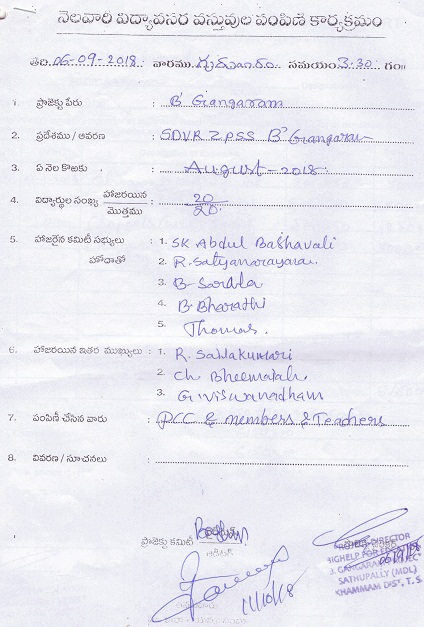 నెలవారి విద్యావసర వస్తువుల పంపిణి కార్యక్రమం
తేది 06-09-2018. వారము గురువారం సమయం 3:30 గం॥
1. ప్రాజెక్టు పేరు : B' Gangaram
2. ప్రదేశము / ఆవరణ : SDVR ZPSS B' Gangaram
3. ఏ నెల కొఱకు : August-2018
4. విద్యార్థుల సంఖ్య హాజరయిన / మొత్తము : 20/20
5. హాజరైన కమిటీ సభ్యులు : 1. SK Abdul Bashavali
హోదాతో 2. R. Satyanarayana
3. B Sarala
4. B. Bharathi
5. Thomas.
6. హాజరయిన ఇతర ముఖ్యులు : 1. R. Sallakumari
2. Ch Bheemaiah
3. G. viswanadham
7. పంపిణీ చేసిన వారు : PCC & members & Teachers
8. వివరణ / సూచనలు :
ప్రాజెక్టు కమిటీ
ఆడిటర్
11/10/18
DIRECTOR
SATHUPALLY (MDL)
KHAMMAM DIST, T.S.